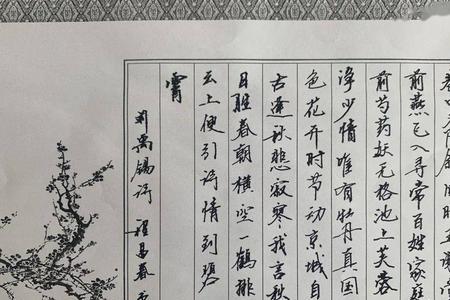 前燕飞入寻常百姓家庭
前芍药妖无格池上芙蓉
净少情唯有牡丹真国
色花开时节动京城自
古逢秋悲寂寥我言秋
日胜春朝横空一鹤排
云上便引诗情到碧
霄
刘禹锡诗 程昌春